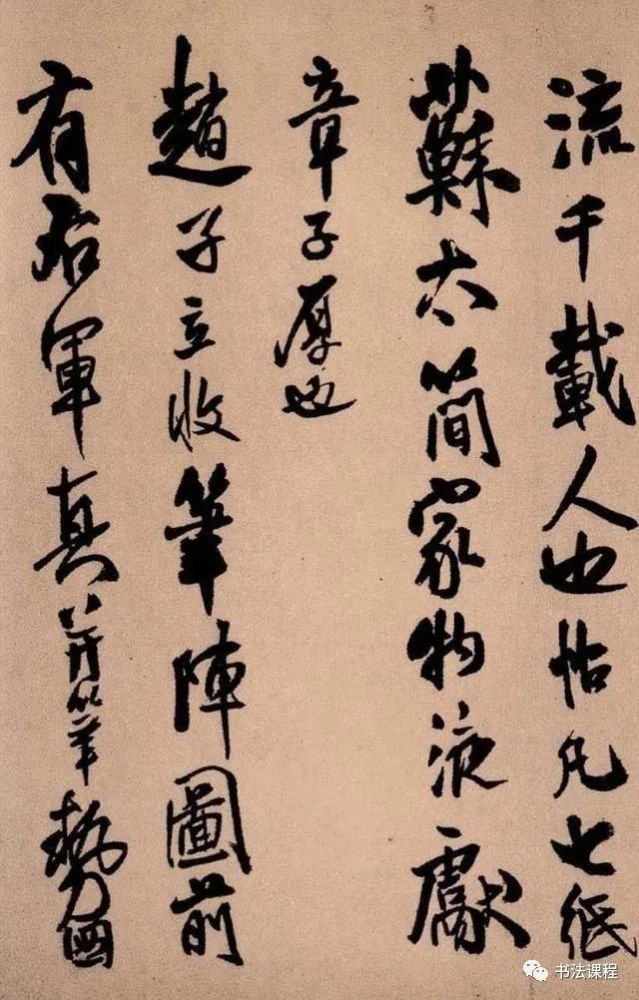 流千載人也帖凡七紙
蘇太簡家物液獻
章子厚也
趙子立收筆陣圖前
有右軍真并筆勢圖
书法课程